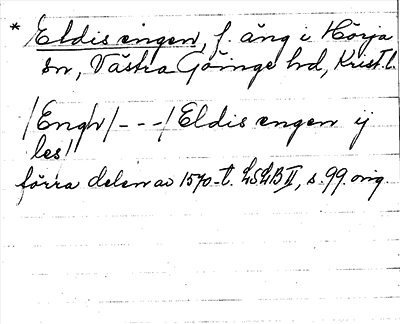 * Eldis engen, f. äng i Hörja
sn, Västra Göinge hd, Krist. l.
/Engh/---/Eldis engen ij
les/
förra delen av 1570-t. LSLB II, s. 99. orig.